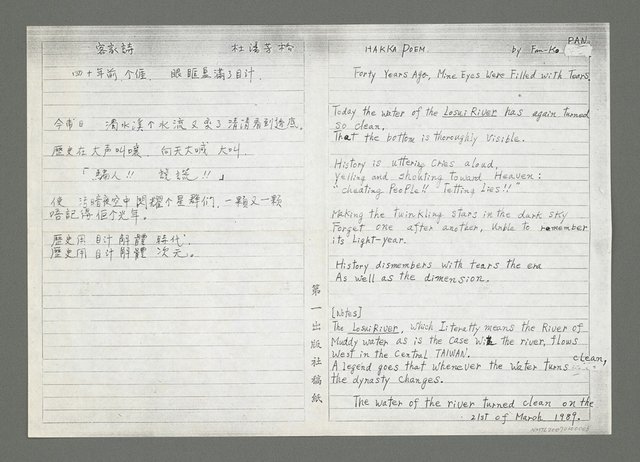 客家詩 杜潘芳格
四十年前个𠊎 眼眶是滿了目汁
今晡日 濁水溪个水流又变了清清看到透底。
歷史在大声叫嚷 向天大喊 大叫
「騙人!! 謊!!」
使 暗夜空中閃耀个星群們,一顆又一顆
唔記得佢个光年。
歷史用目汁解體 時代
歷史用目汁解體 次元。
第一出版社稿紙
HAKKA POEM. by Fan-Ko PAN.
Forty Years Ago, Mine Eyes Were Filled with Tears
Today the water of the Losui River has again turned
so clean,
That the bottom is thoroughly visible.
History is uttering cries aloud,
yelling and shouting toward Heaven:
"cheating People!! Telling Lies!!"
Making the twinkling stars in the dark sky
Forget one after another, Unble to remember
its Light-year.
History dismembers with tears the era
As well as the dimension.
[Notes]
The Losui River, which Literally means the River of
Muddy water as is the case with the river, flows
West in the Central TAIWAN.
A legend goes that whenever the water turns clean,
the dynasty changes.
The water of the river turned clean on the
21st of March 1989.